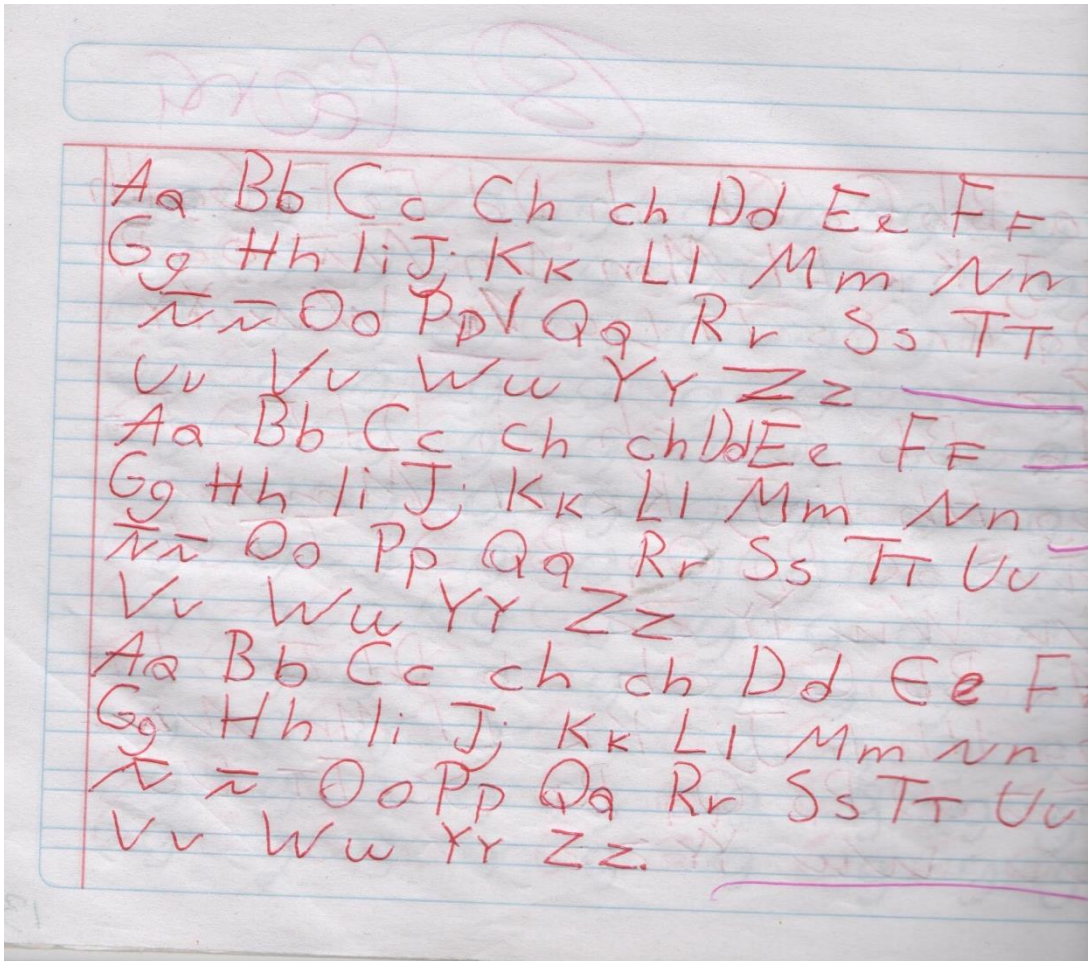 Aa Bb Cc Ch ch Dd Ee F F
Gg Hh Ii Jj Kk Ll Mm Nn
Ññ Oo Pp V Qq Rr Ss TT
Uu Vv Ww Yy Zz
Aa Bb Cc ch ch Dd Ee F F
Gg Hh Ii Jj Kk Ll Mm Nn
Ññ Oo Pp Qq Rr Ss TT Uu
Vv Ww Yy Zz
Aa Bb Cc ch ch Dd Ee F
Gg Hh Ii Jj Kk Ll Mm Nn
Ñ ñ Oo Pp Qq Rr Ss TT Uu
Vv Ww Yy Zz.